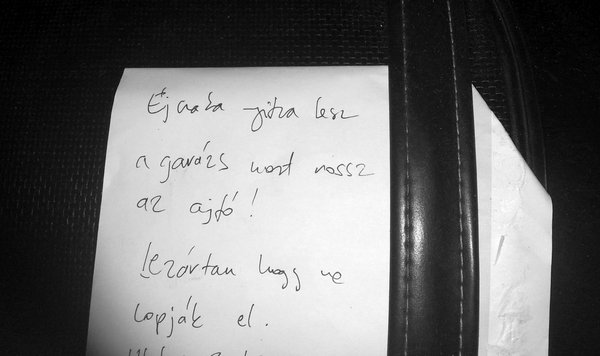 Éjszaka nyitva lesz
a garázs most rossz
az ajtó!
Lezártam hogy ne
lopják el.